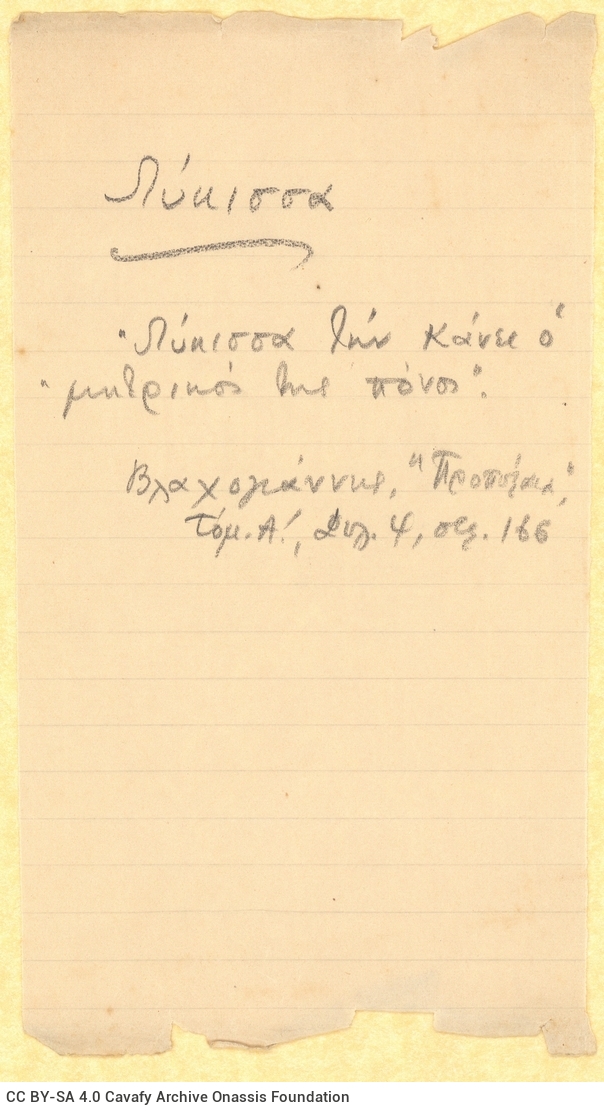 Λύκισσα
"Λύκισσα τήν κάνει ὁ"
"μητρικός της πόνος".
Βλαχογιάννης, "Προπύλαια",
Τόμ. Α΄, Φυλ. 4, σελ. 166
CC BY-SA 4.0 Cavafy Archive Onassis Foundation